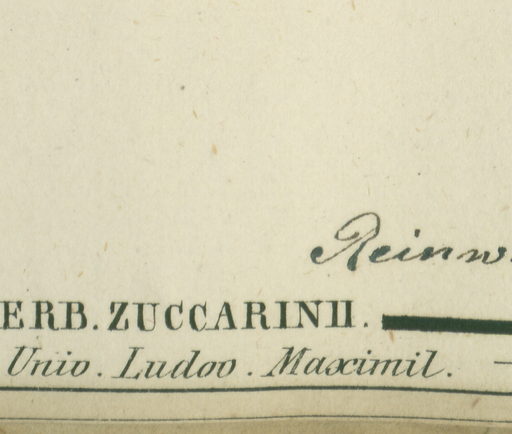 Reinw.
ERB. ZUCCARINII.
Univ. Ludov. Maximil.